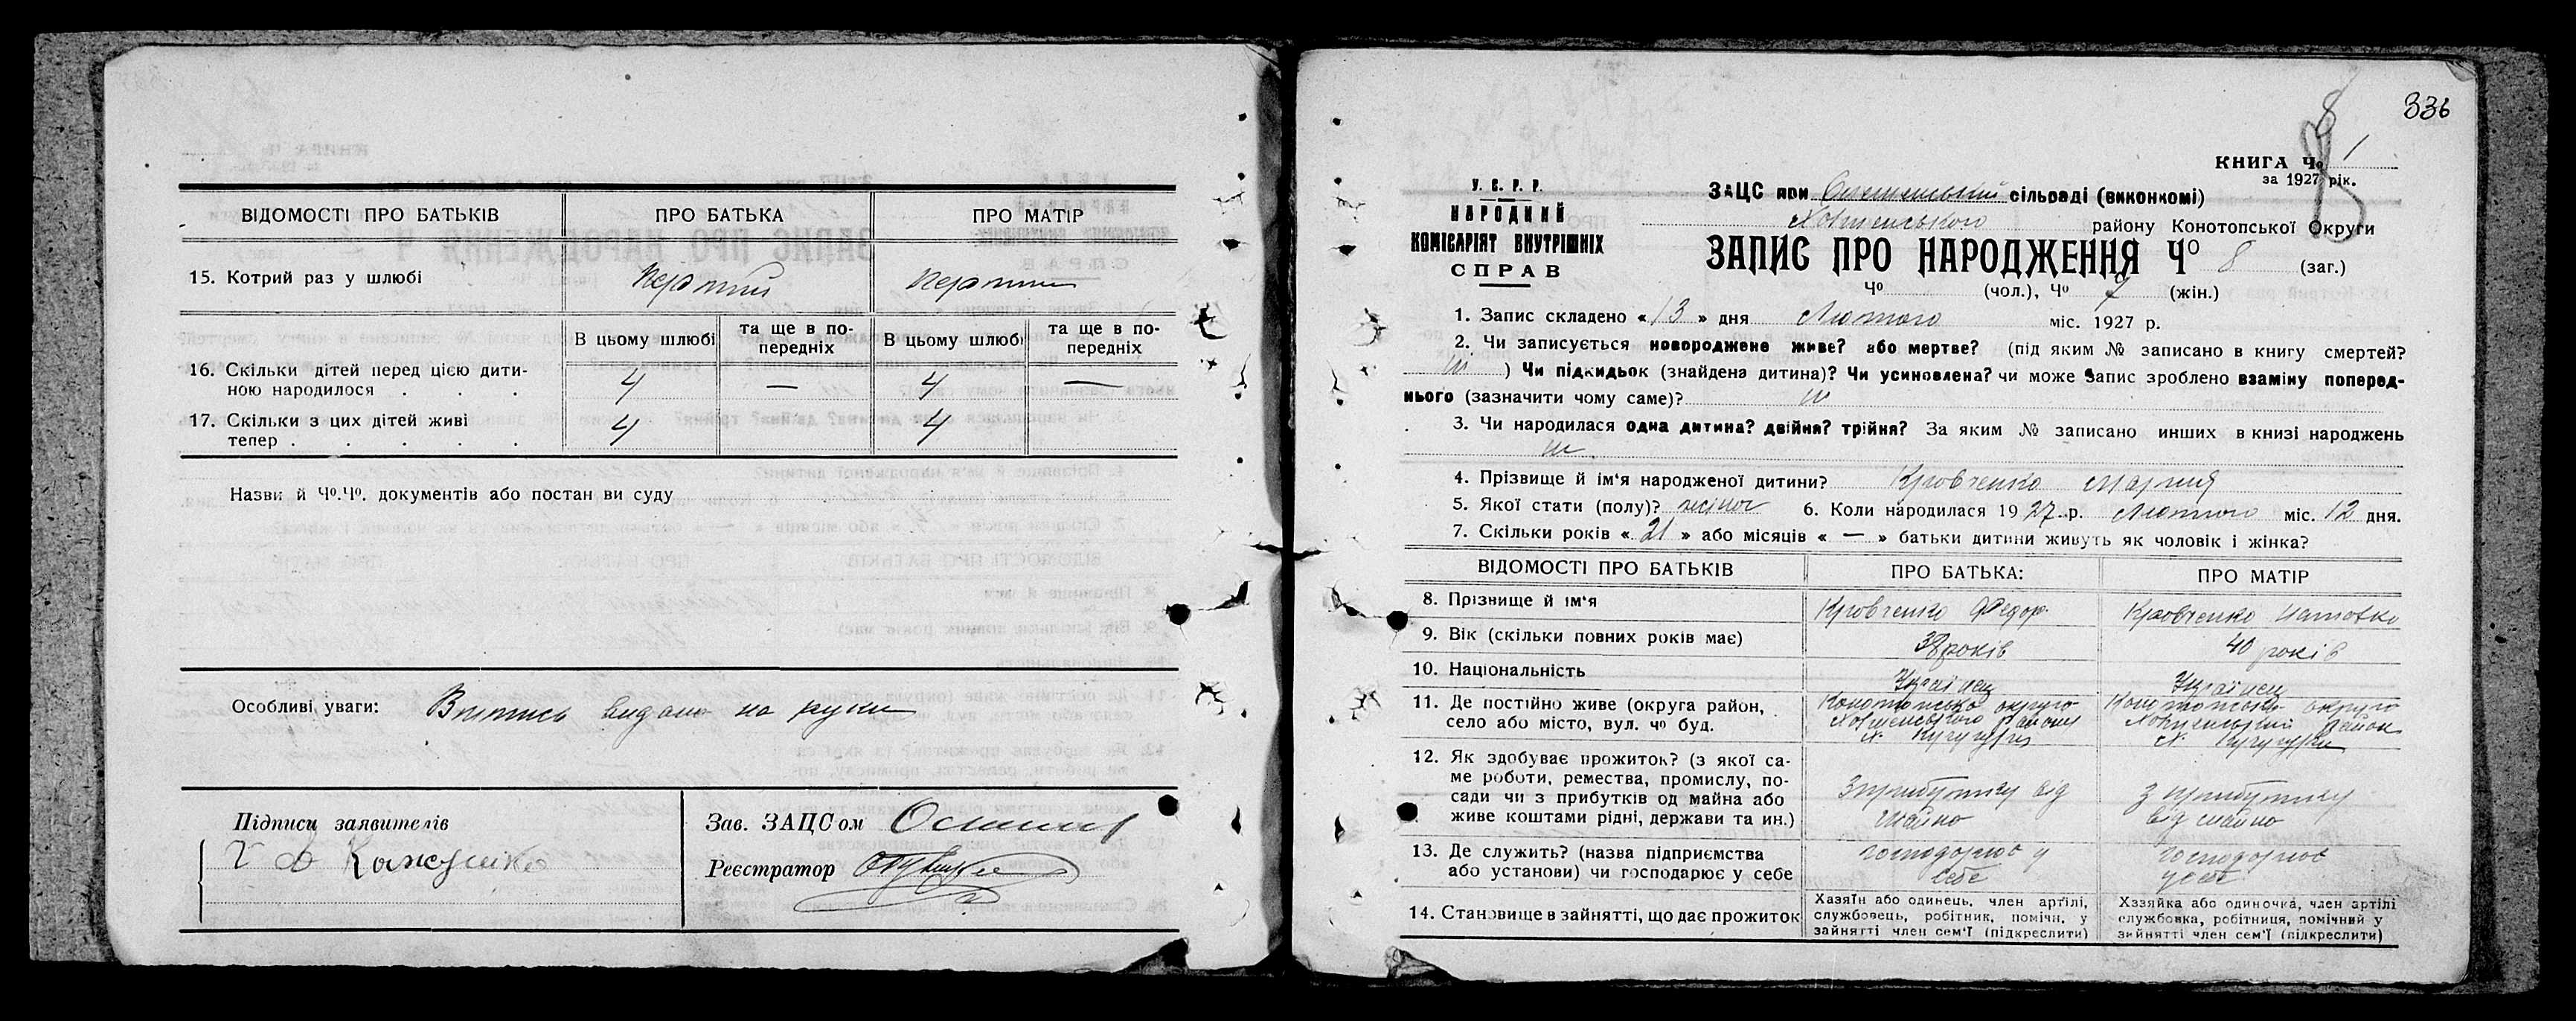 ВІДОМОСТІ ПРО БАТЬКІВ ПРО БАТЬКА ПРО МАТІР
15. Котрий раз у шлюбі Перший Перший
В цьому шлюбі та ще в по-передніх В цьому шлюбі та ще в по-передніх
16. Скільки дітей перед цією дити-
ною народилося . . . 4 — 4 —
17. Скільки з цих дітей живі
тепер . . . . . 4 4
Назви й Чо.Чо. документів або постан ви суду
Особливі уваги: Випись видано на руки
Підписи заявителів
Зав. ЗАЦСом
Реєстратор
336
8
КНИГА Чо 1
за 1927 рік.
У. С. Р. Р.
НАРОДНИЙ
КОМІСАРІЯТ ВНУТРІШНІХ
СПРАВ
ЗАЦС при сільраді (виконкомі)
району Конотопської Округи
ЗАПИС ПРО НАРОДЖЕННЯ Чо 8 (заг.)
Чо (чол.), Чо 7 (жін.)
1. Запис складено « 13 » дня Лютого міс. 1927 р.
2. Чи записується новороджене живе? або мертве? (під яким № записано в книгу смертей?
ні ) Чи підкидьок (знайдена дитина)? Чи усиновлена? чи може запис зроблено взаміну поперед-
нього (зазначити чому саме)? ні
3. Чи народилася одна дитина? двійня? трійня? За яким № записано инших в книзі народжень
ні
4. Прізвище й ім'я народженої дитини? Кровченко Мария
5. Якої стати (полу)? жіноч 6. Коли народилася 1927 р. Лютого міс. 12 дня.
7. Скільки років « 21 » або місяців « — » батьки дитини живуть як чоловік і жінка?
ВІДОМОСТІ ПРО БАТЬКІВ ПРО БАТЬКА: ПРО МАТІР
8. Прізвище й ім'я Кровченко Федор Кровченко
9. Вік (скільки повних років має) 38 років 40 років
10. Національність Українец Українец
11. Де постійно живе (округа район, Конотопсько округо Конотопсько округо
село або місто, вул. чо буд. району район
х. Кучугури х. Кучугури
12. Як здобуває прожиток? (з якої са-
ме роботи, ремества, промислу, по-
сади чи з прибутків од майна або З прибутку від з прибутку
живе коштами рідні, держави та ин.) майно від майно
13. Де служить? (назва підприємства господорює у господорює
або установи) чи господарює у себе себе у себе
14. Становище в зайнятті, що дає прожиток
Хазяїн або одинець, член артілі,
службовець, робітник, помічн. у
зайнятті член сем'ї (підкреслити)
Хазяйка або одиночка, член артілі
службовка, робітниця, помічний у
зайнятті член сем'ї (підкреслити)